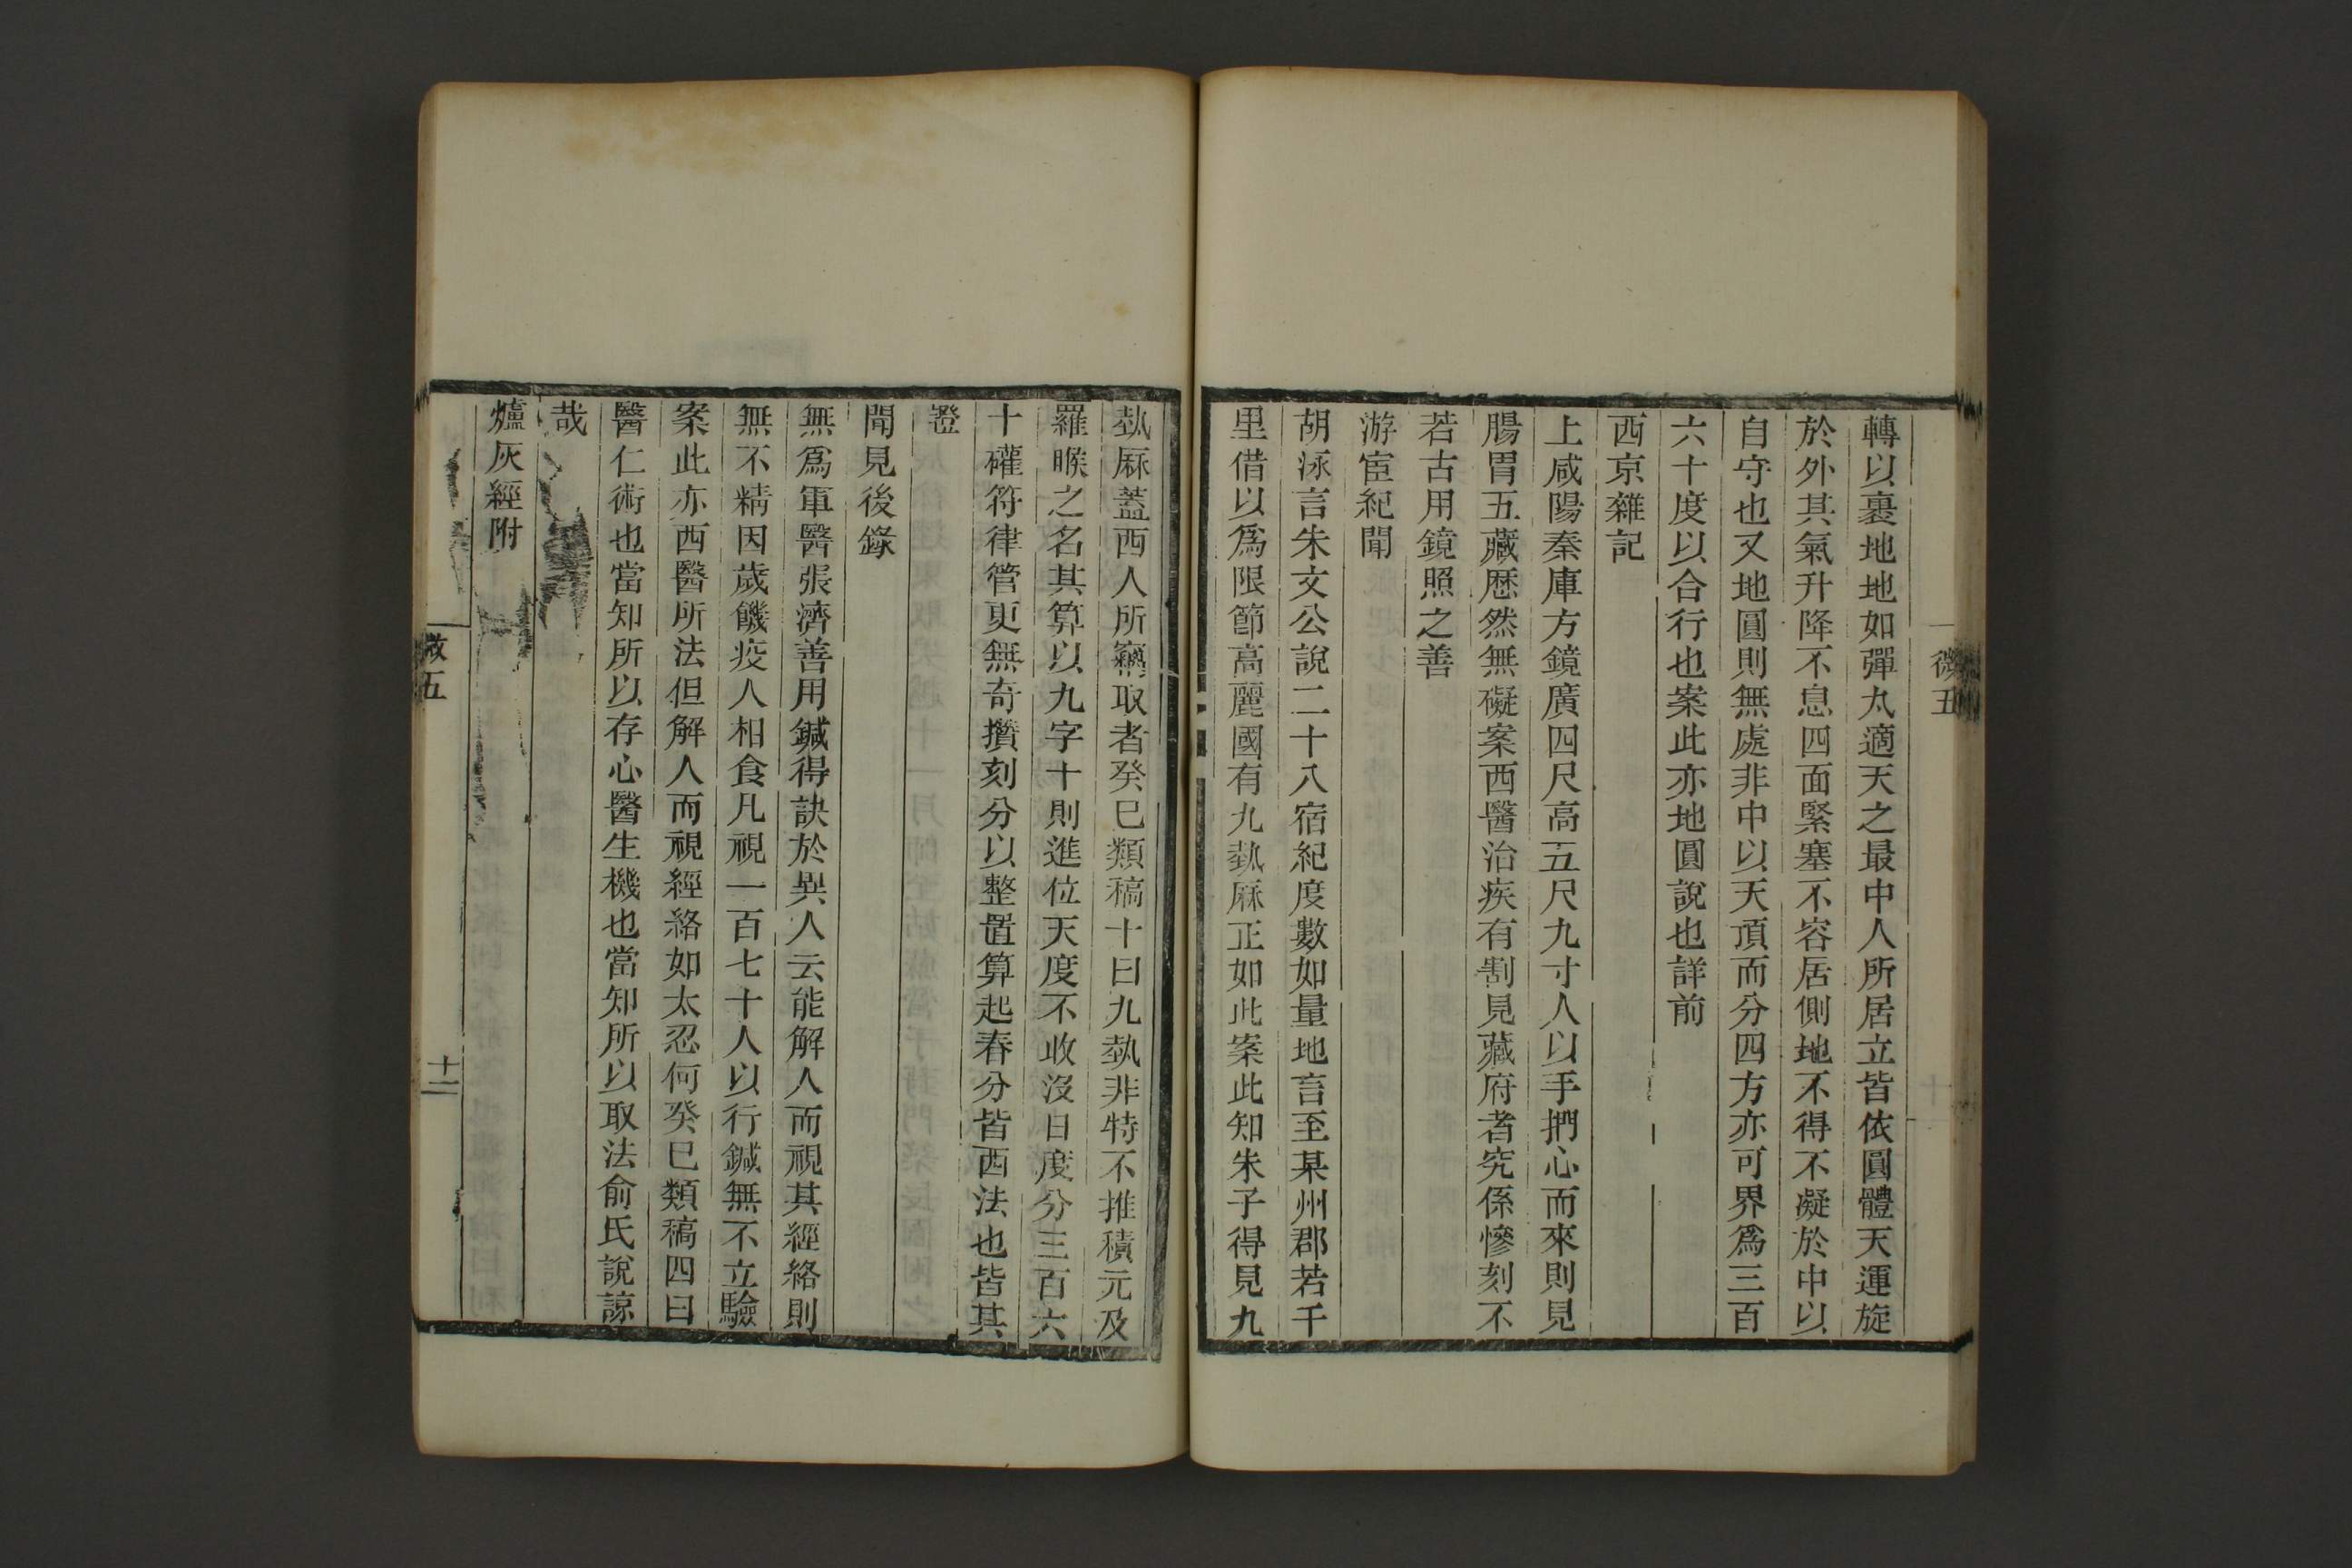 微五
轉以裹地地如彈丸適天之最中人所居立皆依圓體天運旋
於外其氣升降不息四面緊塞不容居側地不得不凝於中以
自守也又地圓則無處非中以天頂而分四方亦可界爲三百
六十度以合行也案此亦地圓說也詳前
西京雜記
上咸陽秦庫方鏡廣四尺高五尺九寸人以手捫心而來則見
腸胃五藏歷然無礙案西醫治疾有割見藏府者究係慘刻不
若古用鏡照之善
游宦紀聞
胡泳言朱文公說二十八宿紀度數如量地言至某州郡若千
里借以爲限節高麗國有九執厤正如此案此知朱子得見九
執厤蓋西人所竊取者癸巳類稿十曰九執非特不推積元及
羅睺之名其算以九字十則進位天度不收沒日度分三百六
十礶符律管更無奇攢刻分以整置算起春分皆西法也皆其
證
聞見後錄
無爲軍醫張濟善用鍼得訣於異人云能解人而視其經絡則
無不精因歲饑疫人相食凡視一百七十人以行鍼無不立驗
案此亦西醫所法但解人而視經絡如太忍何癸巳類稿四曰
醫仁術也當知所以存心醫生機也當知所以取法俞氏說諒
哉
爐灰經附
微五
十二